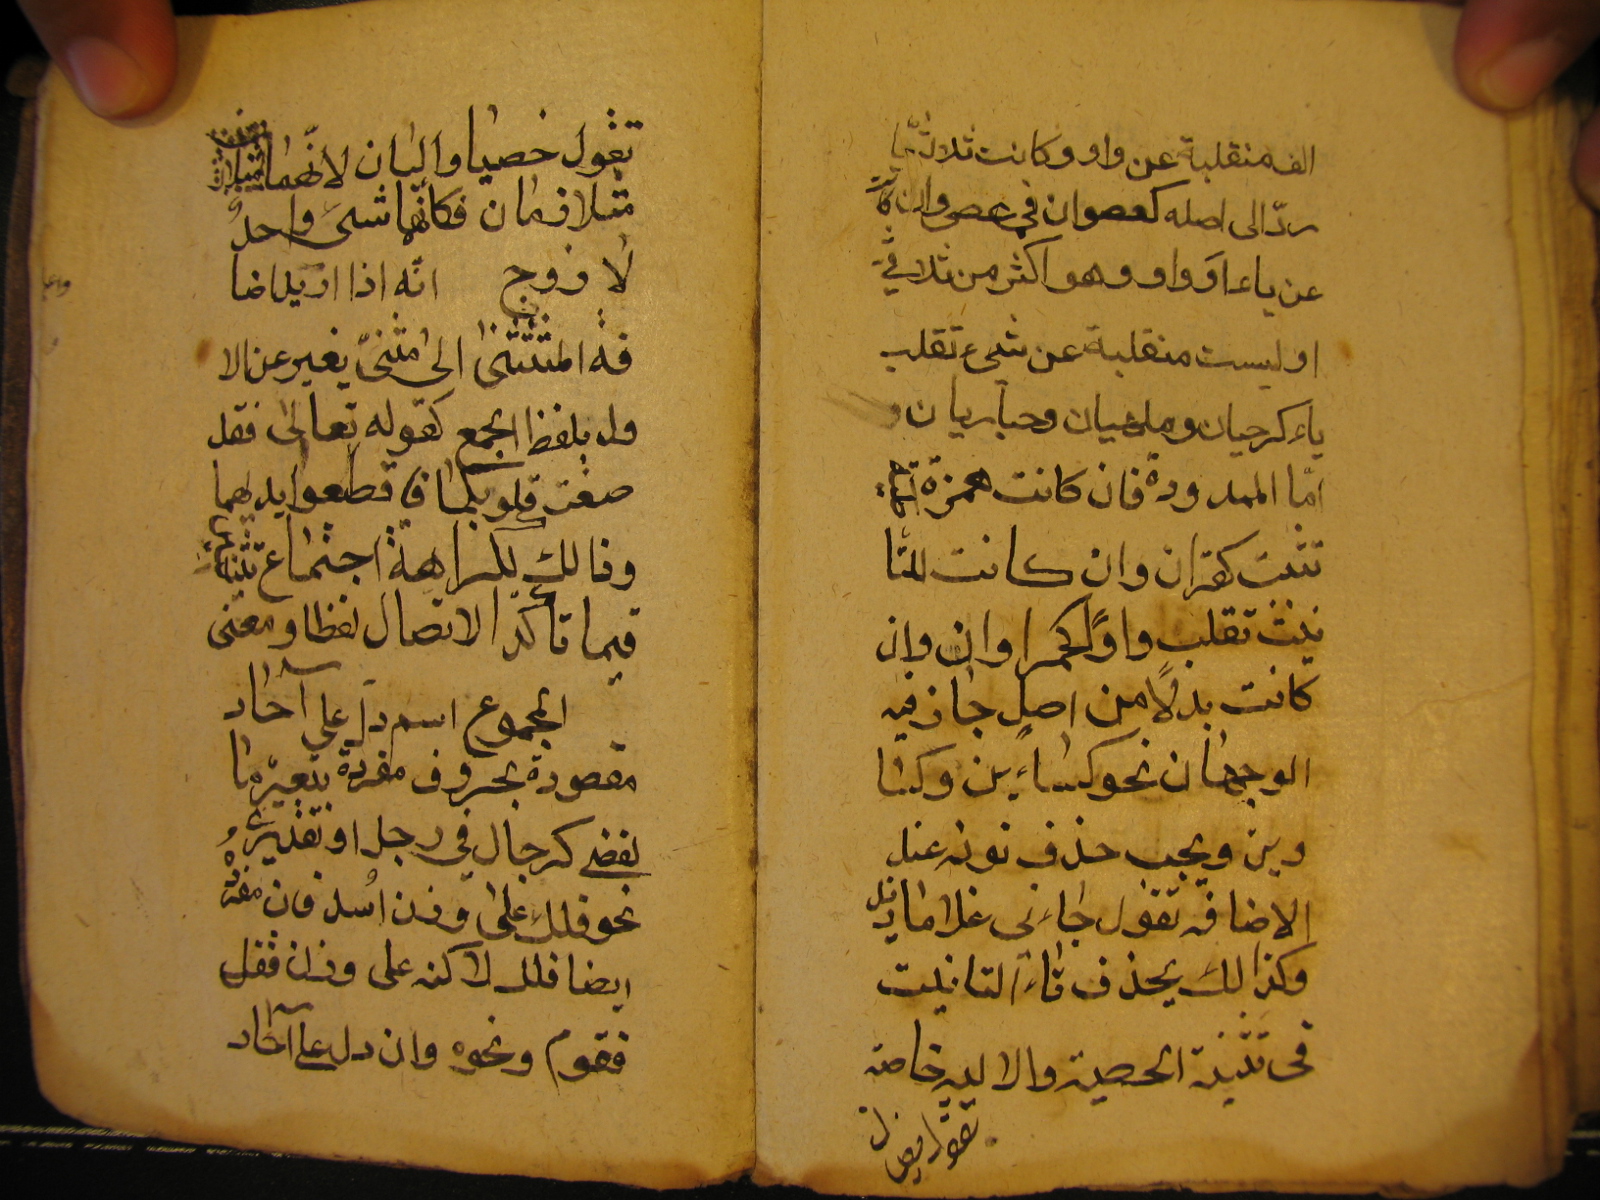 الف منقلبة عن واو وكانت ثلاثيّا
ردّ الى اصله كعصوان فى عصى وان كانت
عن ياء او واو وهو اكثر من ثلاثي
او ليست منقلبة عن شىء تقلب
ياء كرحيان وملهيان وحباريان و
امّا الممدودة فان كانت همزة
تثبت كقرّان وان كانت للتا
نيث تقلب واوًا كحمراوان وان
كانت بدلًا من اصل جاز فيه
الوجهان نحو كساءين وكسا
وين ويجب حذف نونه عند
الاضافه تقول جاءنى غلاما زيد
وكذالك يحذف تاء التانيث
فى تثنية الخصية والالية خاصة
تقول خصيان
تقول خصيا واليان لانّهما
متلازمان فكانهما شىء واحد
لا زوج انّه اذا اريد اضا
فة المثنى الى مثنىّ يعبر عن الا
ول بلفظ الجمع كقوله تعالى فقد
صغت قلوبكما فاقطعوا ايديهما
وذالك لكراهة اجتماع
فيما تاكد الاتصال لفظا ومعنى
المجموع اسم دل على آحاد
مقصودة بحروف مفردة بتغيّر ما
لفظى كرجال فى رجل او تقديرى
نحو فلك على وزن اسد فان مفرده
ايضا فلك لاكنه على وزان قفل
فقوم ونحوه وان دل على آحاد